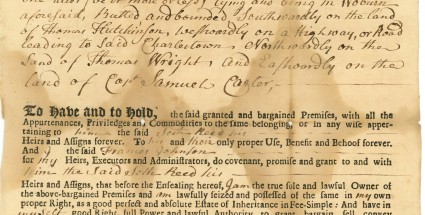 One acre be it more or less, lying and being in Woburn
aforesaid, Butted and bounded Southwardly on the land
of Thomas Hutchinson, westwardly on a Highway, or Road
leading to Said Charlestown, Northwardly on the
land of Thomas Wright, and Eastwardly on the
land of Capt Samuel Carter,
To Have and to Hold, the said granted and bargained Premises, with all the
Appurtenances, Priviledges and Commodities to the same belonging, or in any wise apper-
taining to him the said
Heirs and Assigns forever. To his and their only proper Use, Benefit and Behoof forever.
And I the said Francis Johnson
for my Heirs, Executors and Administrators, do covenant, promise and grant to and with
him the said
Heirs and Assigns, that before the Ensealing hereof, I am the true sole and lawful Owner of
the above-bargained Premises and am lawfully seized and possessed of the same in my own
proper Right, as a good perfect and absolute Estate of Inheritance in Fee-Simple: And have in
myself good Right, full Power and lawful Authority, to grant, bargain, sell, convey